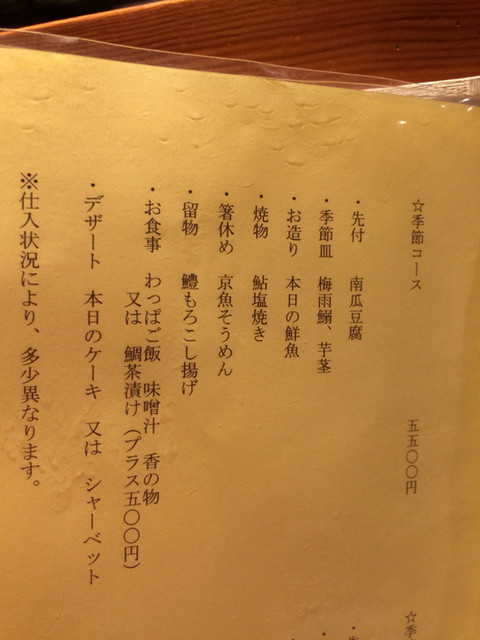 ☆季節コース　五五〇〇円
・先付　南瓜豆腐
・季節皿　梅雨鰯、芋茎
・お造り　本日の鮮魚
・焼物　鮎塩焼き
・箸休め　京魚そうめん
・留物　鱧もろこし揚げ
・お食事　わっぱご飯　味噌汁　香の物
又は　鯛茶漬け（プラス五〇〇円）
・デザート　本日のケーキ　又は　シャーベット
※仕入状況により、多少異なります。
☆季